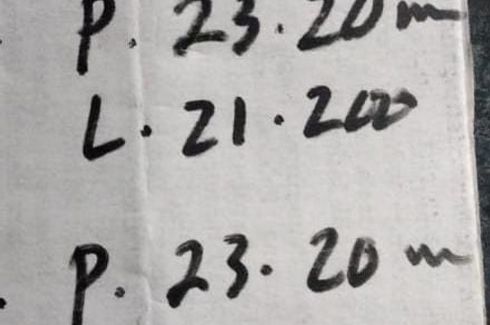 P. 23.20m
L. 21.200
P. 23.20m